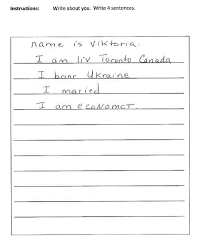 Instructions: Write about you. Write 4 sentences.
name is Viktoria.
I am liv Toronto Canada
I bonr Ukraine
I maried
I am economct.